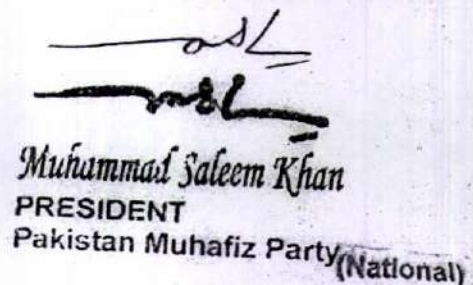 Muhammad Saleem Khan
PRESIDENT
Pakistan Muhafiz Party (National)